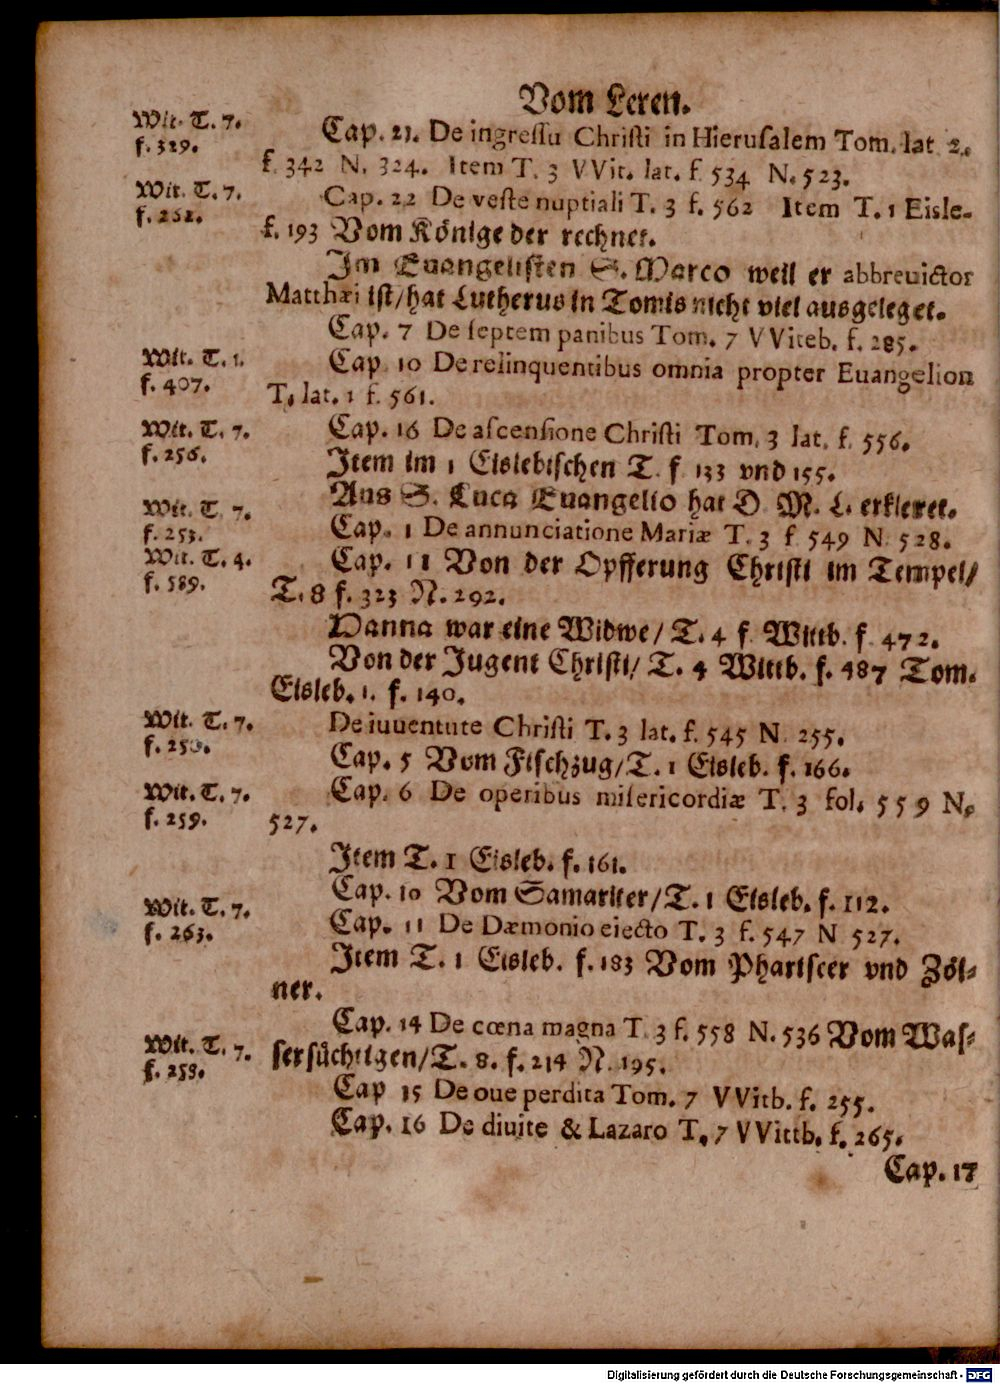 Vom Leren.
Wit. T. 7.
f. 329.
Cap. 21. De ingressu Christi in Hierusalem Tom. lat 2.
f. 342 N. 324. Item T. 3 VVit. lat. f. 534 N. 523.
Wit. T. 7.
f. 262.
Cap. 22 De veste nuptiali T. 3 f. 562 Item T. 1 Eisle-
f. 193 Vom Könige der rechnet.
Im Euangelisten S. Marco weil er abbreuictor
Matthæi ist/ hat Lutherus in Tomis nicht viel ausgeleget.
Cap. 7 De septem panibus Tom. 7 VViteb. f. 285.
Wit. T. 1.
f. 407.
Cap 10 De relinquentibus omnia propter Euangelion
T. lat. 1 f. 561.
Wit. T. 7.
f. 256.
Cap. 16 De ascensione Christi Tom. 3 lat. f. 556.
Item im 1 Eislebischen T. f 133 vnd 155.
Aus S. Luca Euangelio hat D M. L. erkleret.
Wit. T. 7.
f. 253.
Cap. 1 De annunciatione Mariæ T. 3 f 549 N. 528.
Wit. T. 4.
f. 589.
Cap. 11 Von der Opfferung Christi im Tempel/
T. 8 f. 323 N. 292.
Hanna war eine Widwe/ T. 4 f Wittb. f. 472.
Von der Jugent Christi/ T. 4 Wittb. f. 487 Tom.
Eisleb. 1. f. 140.
Wit. T. 7.
f. 250.
De iuuentute Christi T. 3 lat. f. 545 N. 255.
Cap. 5 Vom Fischzug/ T. 1 Eisleb. f. 166.
Wit. T. 7.
f. 259.
Cap. 6 De operibus misericordiæ T. 3 fol. 559 N.
527.
Item T. 1 Eisleb. f. 161.
Cap. 10 Vom Samariter/ T. 1 Eisleb. f. 112.
Wit. T. 7.
f. 263.
Cap. 11 De Dæmonio eiecto T. 3 f. 547 N 527.
Item T. 1 Eisleb. f. 183 Vom Phariseer vnd Zöl-
ner.
Cap. 14 De cœna magna T. 3 f. 558 N. 536 Vom Was-
Wit. T. 7.
f. 258.
sersüchtigen/ T. 8. f. 214 N. 195.
Cap 15 De oue perdita Tom. 7 VVitb. f. 255.
Cap. 16 De diuite & Lazaro T. 7 VVittb. f. 265.
Cap. 17
Digitalisierung gefördert durch die Deutsche Forschungsgemeinschaft - DFG